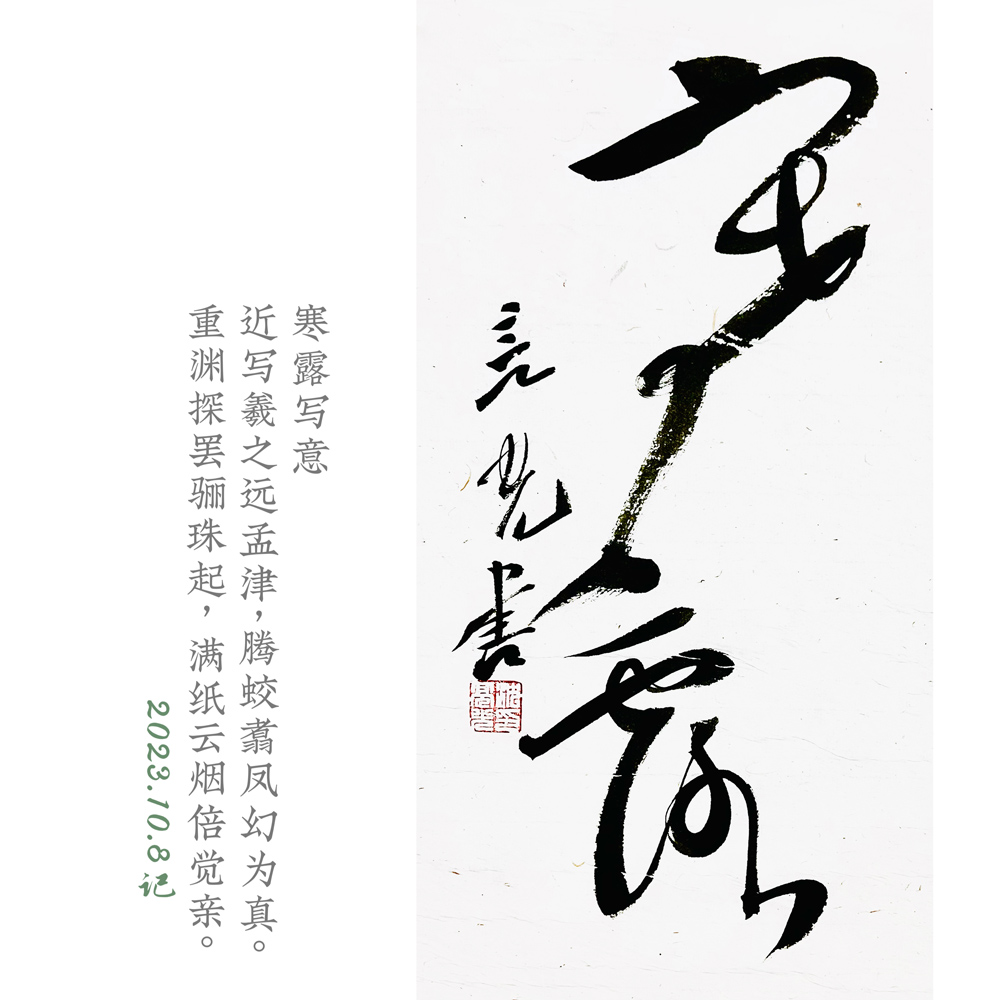 寒露
亮光书
寒露写意
近写羲之远孟津，腾蛟翥凤幻为真。
重渊探罢骊珠起，满纸云烟倍觉亲。
2023.10.8记